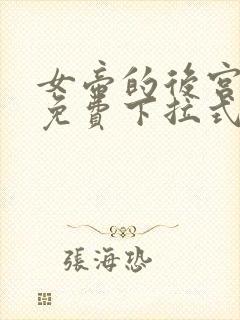 女帝的後宮
免費下拉式
張海恐